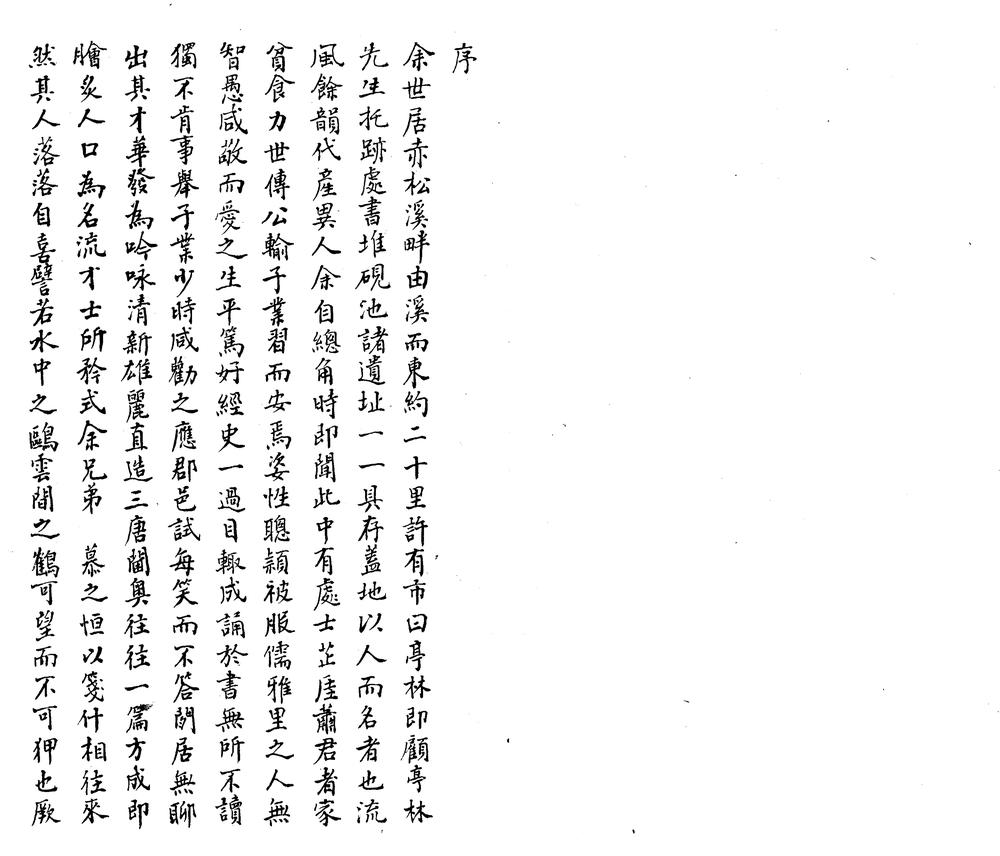 序
余世居赤松溪畔由溪而東約二十里許有市曰亭林即顧亭林
先生托跡處書堆硯池諸遺址一一具存蓋地以人而名者也流
風餘韻代產異人余自總角時即聞此中有處士芷厓蕭君者家
貧食力世傳公輸子業習而安焉姿性聰穎被服儒雅里之人無
智愚咸敬而愛之生平篤好經史一過目輒成誦於書無所不讀
獨不肯事舉子業少時咸勸之應郡邑試每笑而不答閒居無聊
出其才華發為吟咏清新雄麗直造三唐閫奧往往一篇方成即
膾炙人口為名流才士所矜式余兄弟　慕之恒以箋什相往來
然其人落落自喜譬若水中之鷗雲間之鶴可望而不可狎也厥